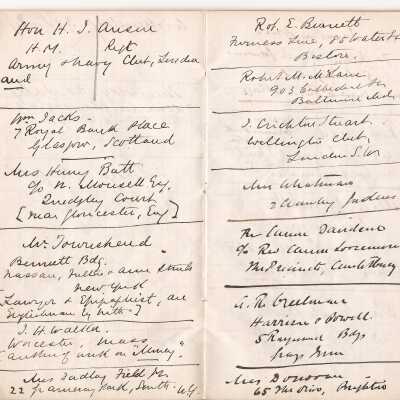 Hon H. J. Anson
H.M. Regt
Army & Navy Club, London
and
Wm Jacks
7 Royal Bank Place
Glasgow, Scotland
Mrs Henry Batt
c/o N. Mousell Esq.
Quedgley Court
[near Gloucester, Eng]
Mr. Townshend
Bennett Bdg.
Nassau, & Ann Streets
New York
Lawyer & Epigraphist, an
Englishman by birth]
J. H. Walter
Worcester, Mass
"author of work on "Money".
Mrs Dudley Field Jr
22 Gramercy Park, South. N.Y.
Robt. E. Bennett
Furness Line, 85 Water St
Boston.
Robert M. McLane
903 Cathedral St
Baltimore Md.
J. Crichton Stuart.
Wellington Club,
London S.W
Mrs Whatman
2 Cranley Gardens
c/o Rev
The Precincts, Canterbury
Harrison & Powell
5 Raymond Bdgs
Grays Inn
Mrs Donovan
65 Brighton